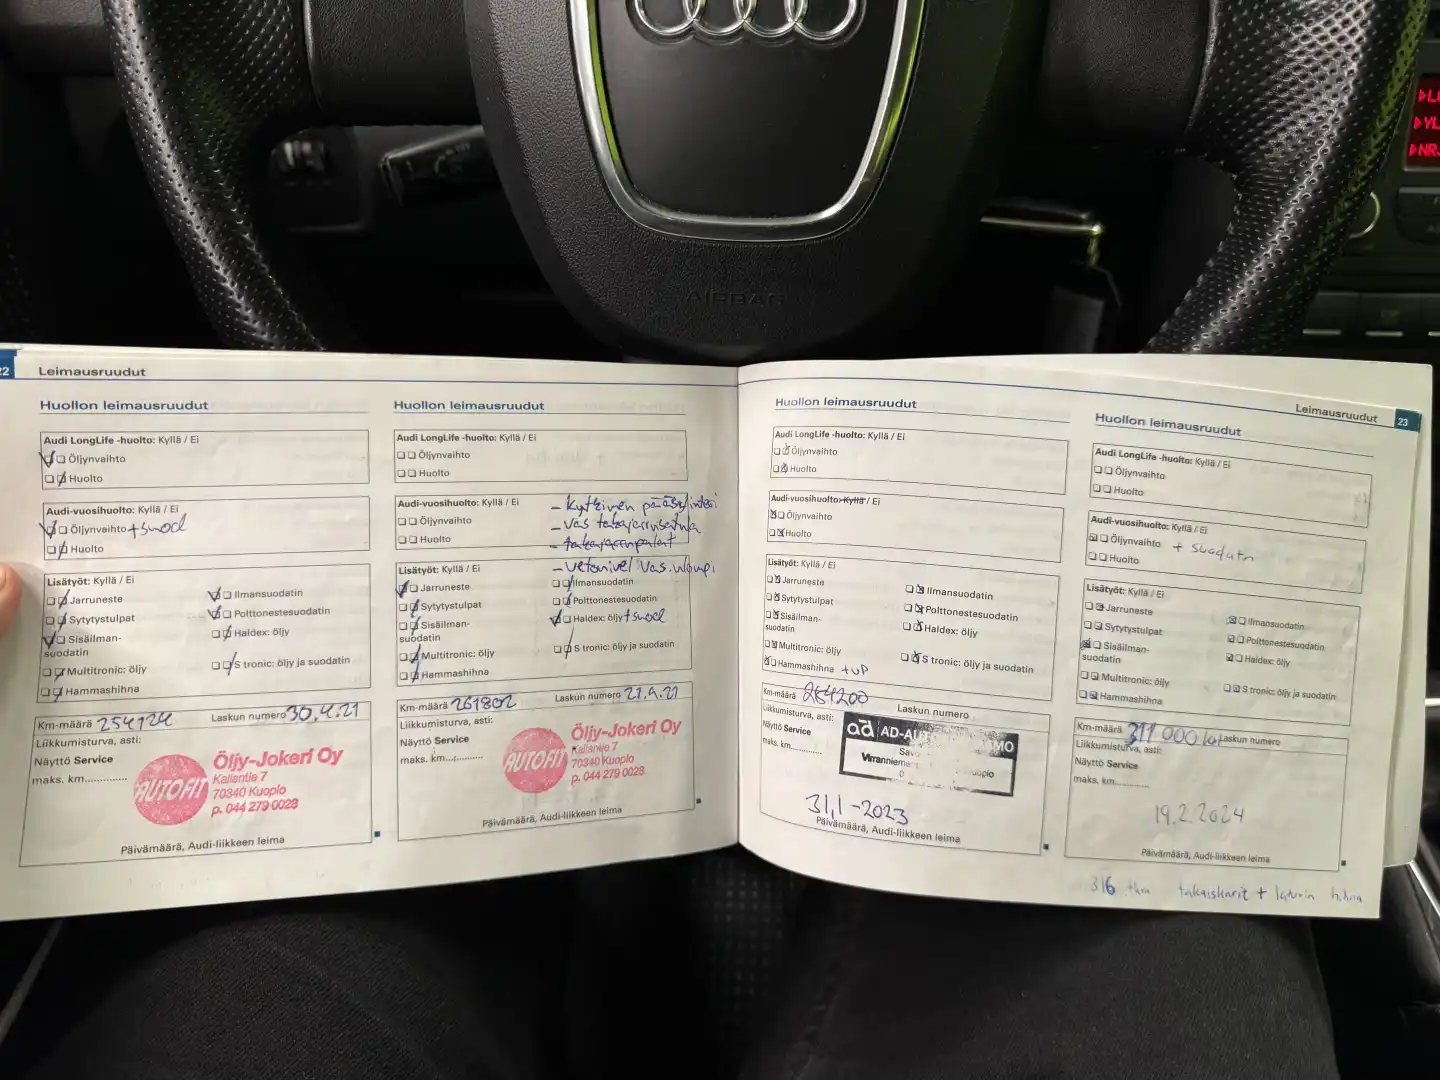 AIRBAG
22
Leimausruudut
Huollon leimausruudut
Audi LongLife -huolto: Kyllä / Ei
Öljynvaihto
Huolto
Audi-vuosihuolto: Kyllä / Ei
Öljynvaihto + suod
Huolto
Lisätyöt: Kyllä / Ei
Jarruneste
Sytytystulpat
Sisäilman-
suodatin
Multitronic: öljy
Hammashihna
Ilmansuodatin
Polttonestesuodatin
Haldex: öljy
S tronic: öljy ja suodatin
Km-määrä 254124
Laskun numero 30.4.21
Liikkumisturva, asti:
Näyttö Service
maks. km.............
AUTOFIT
Öljy-Jokeri Oy
Kallantie 7
70340 Kuopio
p. 044 279 0028
Päivämäärä, Audi-liikkeen leima
Huollon leimausruudut
Audi LongLife -huolto: Kyllä / Ei
Öljynvaihto
Huolto
Audi-vuosihuolto: Kyllä / Ei
Öljynvaihto
Huolto
- Kytkimen
- Vas
- takajarrupalat
- Vetonivel Vas.
Lisätyöt: Kyllä / Ei
Jarruneste
Sytytystulpat
Sisäilman-
suodatin
Multitronic: öljy
Hammashihna
Ilmansuodatin
Polttonestesuodatin
Haldex: öljy + suod
S tronic: öljy ja suodatin
Km-määrä 261802
Laskun numero 21.9.21
Liikkumisturva, asti:
Näyttö Service
maks. km.............
AUTOFIT
Öljy-Jokeri Oy
Kallantie 7
70340 Kuopio
p. 044 279 0028
Päivämäärä, Audi-liikkeen leima
Huollon leimausruudut
Audi LongLife -huolto: Kyllä / Ei
Öljynvaihto
Huolto
Audi-vuosihuolto: Kyllä / Ei
Öljynvaihto
Huolto
Lisätyöt: Kyllä / Ei
Jarruneste
Sytytystulpat
Sisäilman-
suodatin
Multitronic: öljy
Hammashihna + VP
Ilmansuodatin
Polttonestesuodatin
Haldex: öljy
S tronic: öljy ja suodatin
Km-määrä
Laskun numero
Liikkumisturva, asti:
Näyttö Service
maks. km.............
ad
31.1-2023
Päivämäärä, Audi-liikkeen leima
Leimausruudut
23
Huollon leimausruudut
Audi LongLife -huolto: Kyllä / Ei
Öljynvaihto
Huolto
Audi-vuosihuolto: Kyllä / Ei
Öljynvaihto + suodatin
Huolto
Lisätyöt: Kyllä / Ei
Jarruneste
Sytytystulpat
Sisäilman-
suodatin
Multitronic: öljy
Hammashihna
Ilmansuodatin
Polttonestesuodatin
Haldex: öljy
S tronic: öljy ja suodatin
Km-määrä 311 000 km
Laskun numero
Liikkumisturva, asti:
Näyttö Service
maks. km.............
19.2.2024
Päivämäärä, Audi-liikkeen leima
316 tkm takaiskarit + laturin hihna